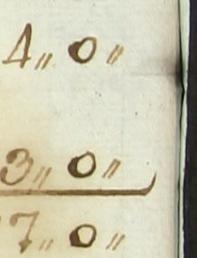 4„ 0„
3„ 0„
7„ 0„